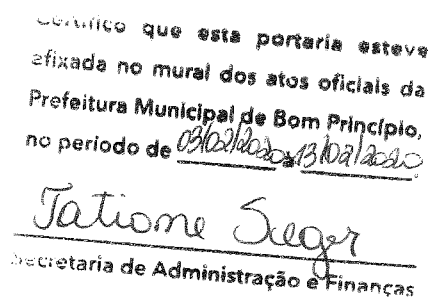 Certifico que esta portaria esteve
afixada no mural dos atos oficiais da
Prefeitura Municipal de Bom Princípio,
no periodo de 03/02/2020 a 13/02/2020.
Tatiane Sieger
Secretaria de Administração e Finanças